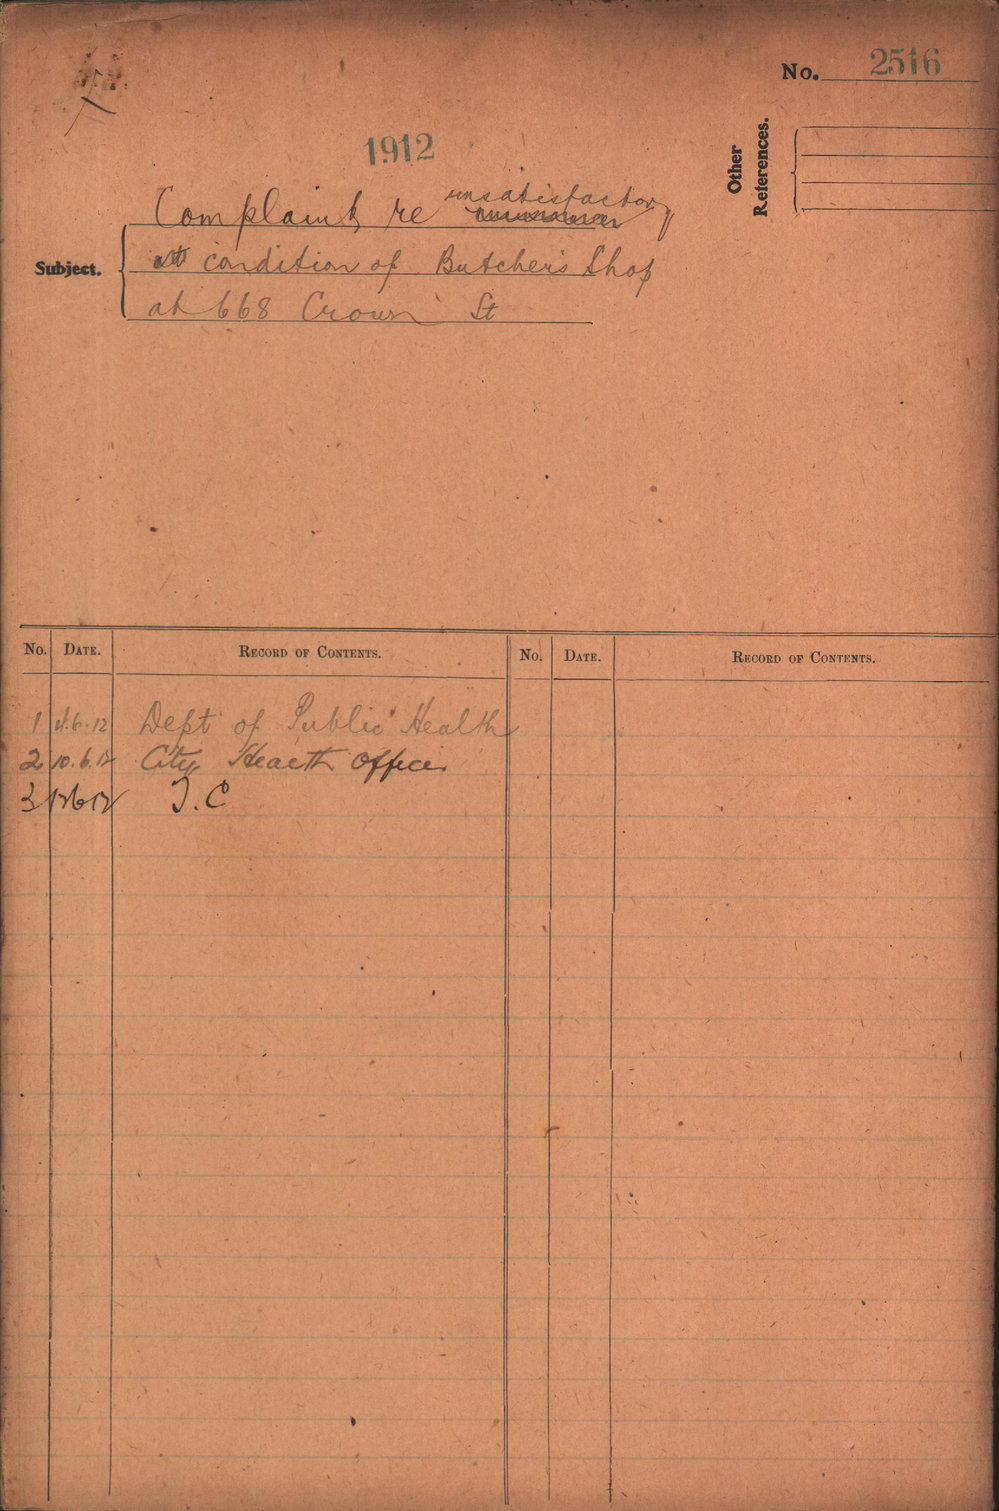 No. 2516
Other
References.
1912
unsatisfactory
Complaint re
Subject.
condition of Butcher's Shop
at 668 Crown St
No. DATE. RECORD OF CONTENTS. No. DATE. RECORD OF CONTENTS.
1 4.6.12 Dept of Public Health
2 10.6.12 City Health Officer
3 12 6 12 T.C